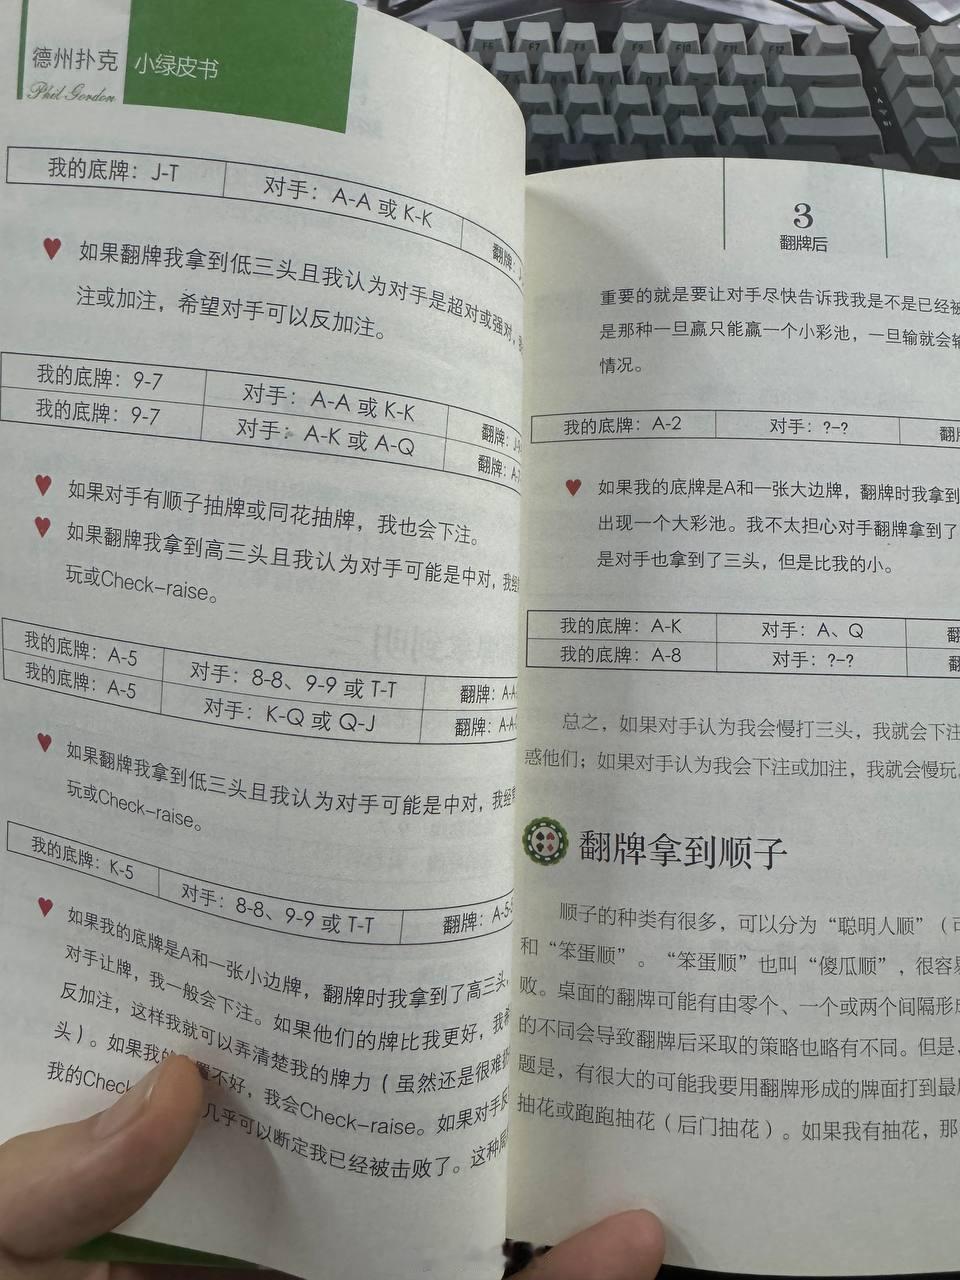 德州扑克 小绿皮书
Phil Gordon
我的底牌：J-T 对手：A-A 或 K-K 翻牌：J-
如果翻牌我拿到低三头且我认为对手是超对或强对，
注或加注，希望对手可以反加注。
我的底牌：9-7 对手：A-A 或 K-K 翻牌：J-
我的底牌：9-7 对手：A-K 或 A-Q 翻牌：A-7
如果对手有顺子抽牌或同花抽牌，我也会下注。
如果翻牌我拿到高三头且我认为对手可能是中对，我经
玩或Check-raise。
我的底牌：A-5 对手：8-8、9-9 或 T-T 翻牌：A-A
我的底牌：A-5 对手：K-Q 或 Q-J 翻牌：A-A-
如果翻牌我拿到低三头且我认为对手可能是中对，我经
玩或Check-raise。
我的底牌：K-5 对手：8-8、9-9 或 T-T 翻牌：A-5-
如果我的底牌是A和一张小边牌，翻牌时我拿到了高三头，
对手让牌，我一般会下注。如果他们的牌比我更好，我
反加注，这样我就可以弄清楚我的牌力（虽然还是很难
头）。如果我的 置不好，我会Check-raise。如果对手
我的Chec 几乎可以断定我已经被击败了。这种
3
翻牌后
重要的就是要让对手尽快告诉我我是不是已经被
是那种一旦赢只能赢一个小彩池，一旦输就会输
情况。
我的底牌：A-2 对手：?-? 翻
如果我的底牌是A和一张大边牌，翻牌时我拿到
出现一个大彩池。我不太担心对手翻牌拿到了
是对手也拿到了三头，但是比我的小。
我的底牌：A-K 对手：A、Q 翻
我的底牌：A-8 对手：?-? 翻
总之，如果对手认为我会慢打三头，我就会下注
惑他们；如果对手认为我会下注或加注，我就会慢玩。
翻牌拿到顺子
顺子的种类有很多，可以分为“聪明人顺”（可
和“笨蛋顺”。“笨蛋顺”也叫“傻瓜顺”，很容易
败。桌面的翻牌可能有由零个、一个或两个间隔形成
的不同会导致翻牌后采取的策略也略有不同。但是、
题是，有很大的可能我要用翻牌形成的牌面打到最
抽花或跑跑抽花（后门抽花）。如果我有抽花，那